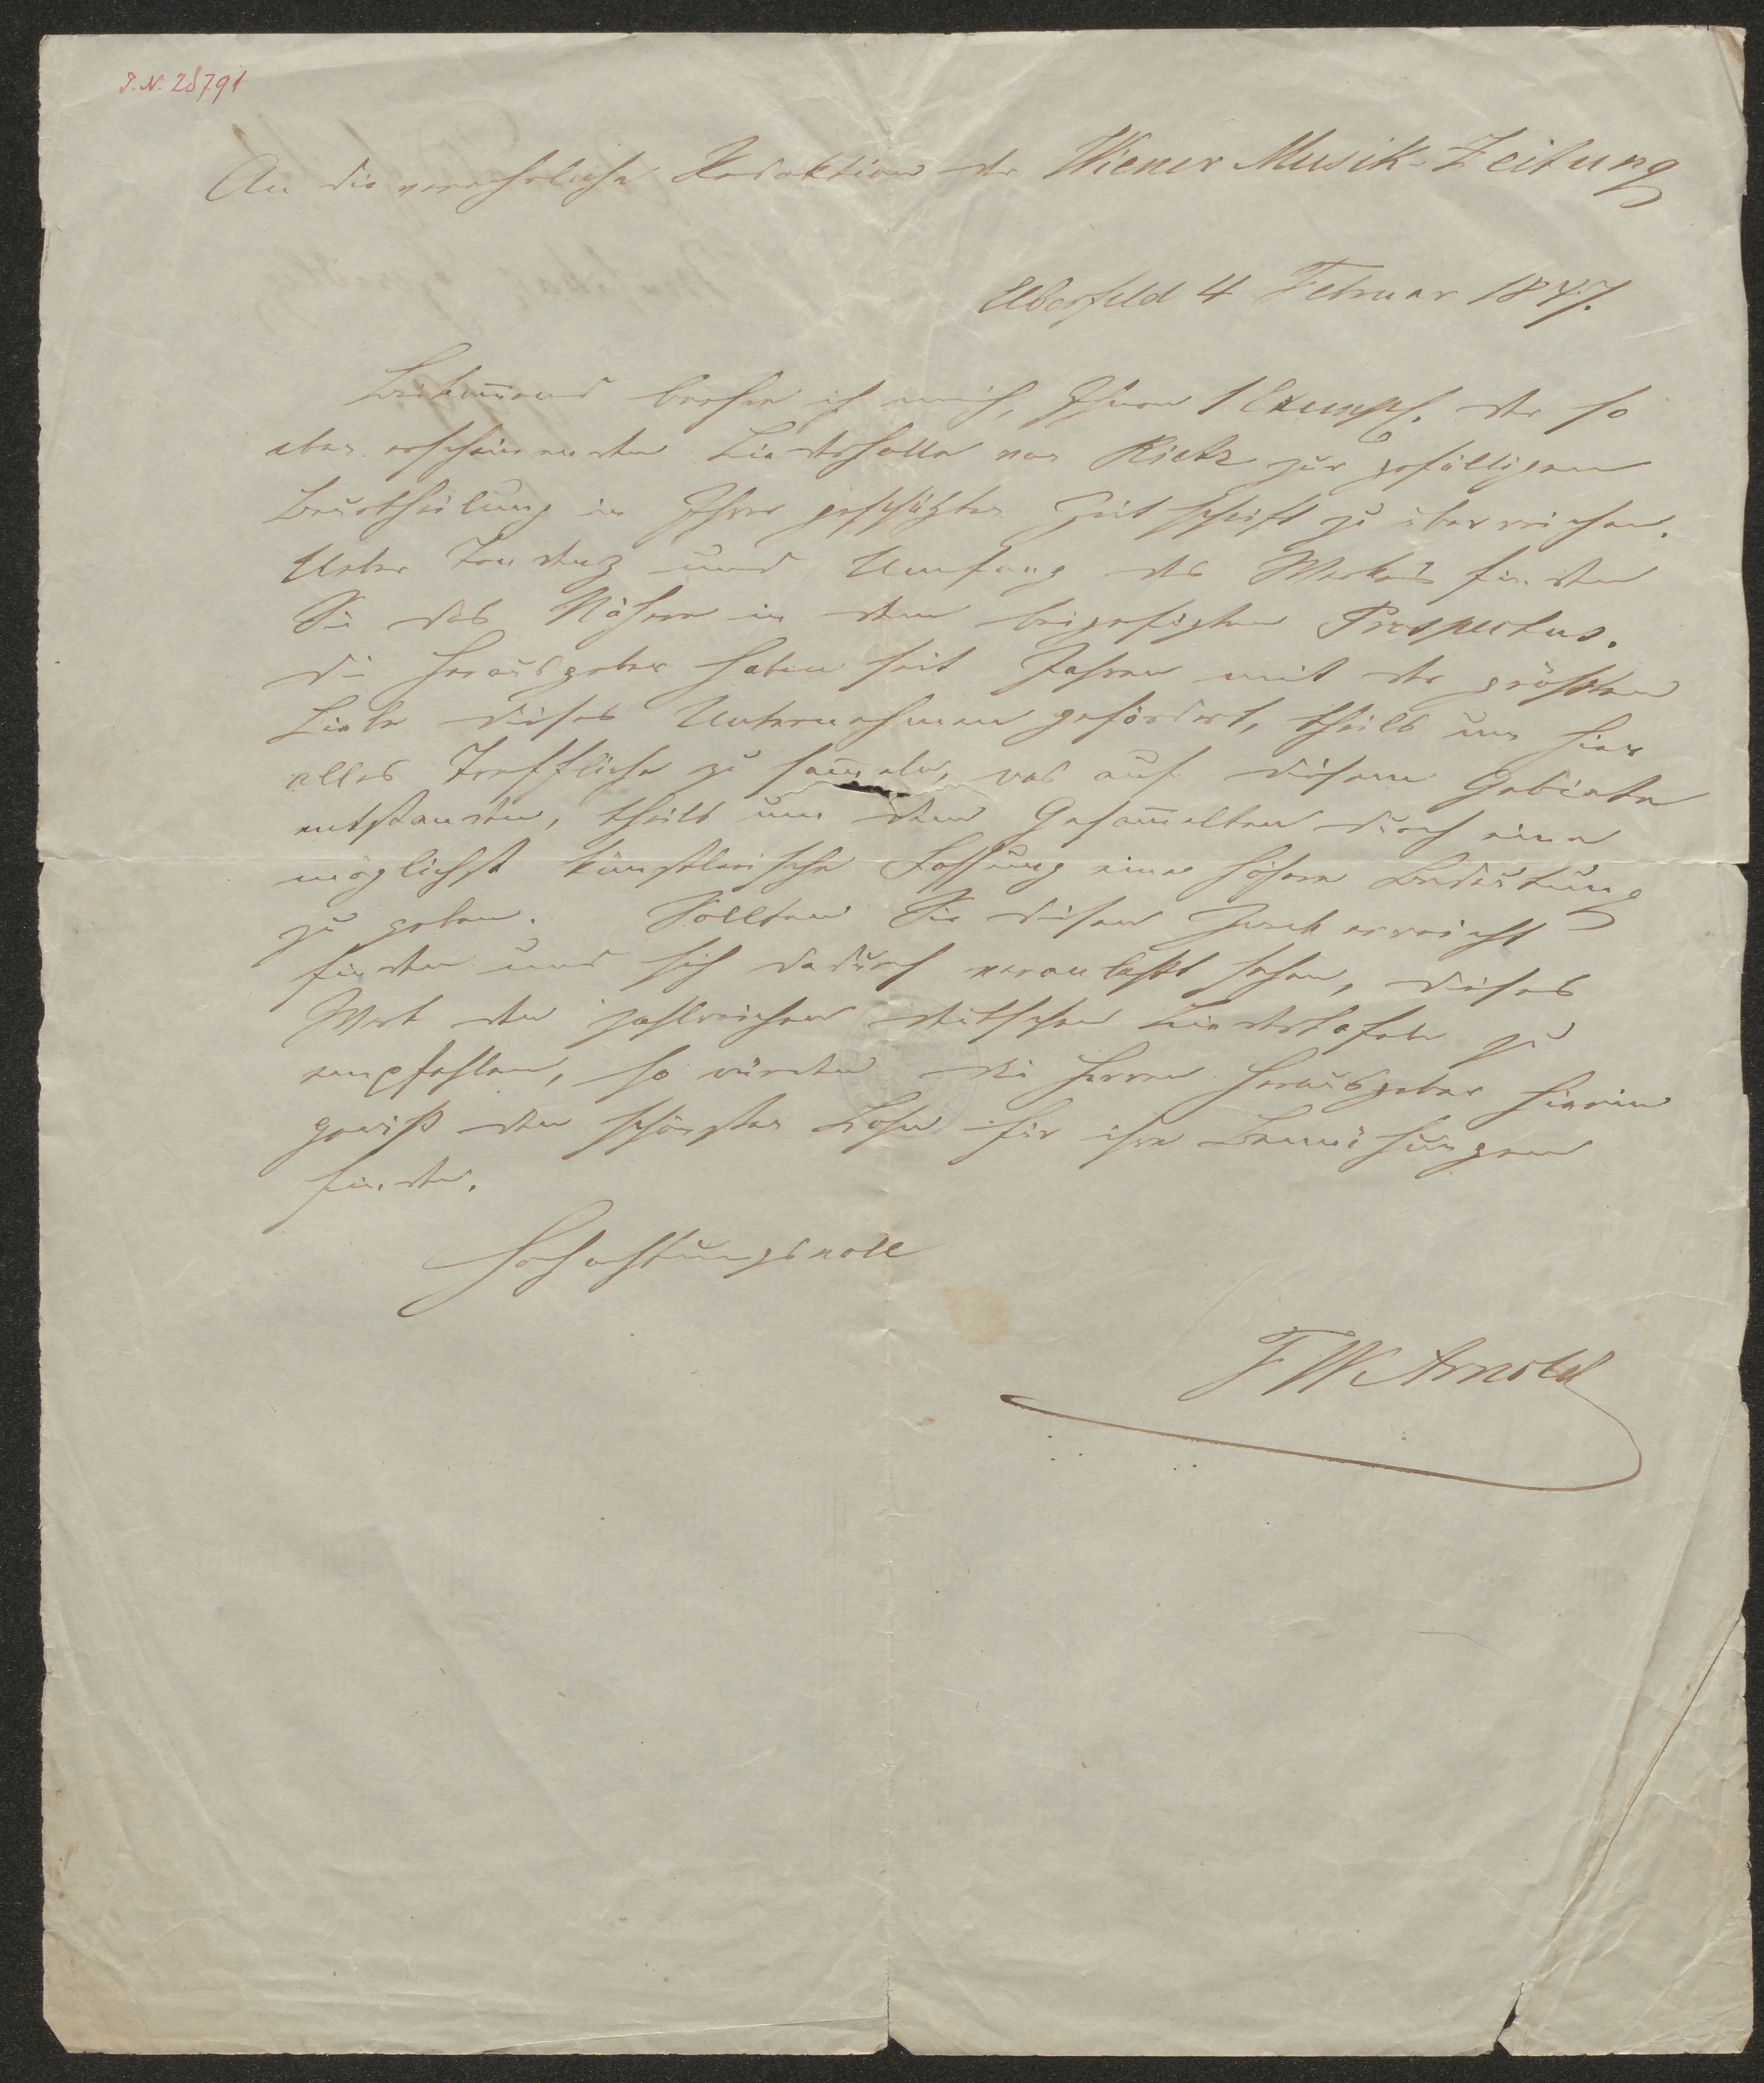 I. N. 28791
An die verehrliche Redaktion der Wiener Musik-Zeitung
Elberfeld 4 Februar 1847.
Beikom̅end beehre ich mich, Ihnen 1 Exempl. der so
eben erscheinenden Liederhalle von Rietz zur gefälligen
Beurtheilung in Ihrer geschätzten Zeitschrift zu überreichen.
Ueber Tendenz und Umfang des Werkes finden
Sie das Nähere in dem beigefügten Prospectus.
Die Herausgeber haben seit Jahren mit der größten
Liebe dieses Unternehmen gefördert, theils um hier
alles Treffliche zu sam̅eln, was auf diesem Gebiete
entstanden, theils um dem Gesam̅elten durch eine
möglichst künstlerische Fassung eine höhere Bedeutung
zu geben. Sollten Sie diesen Zweck erreicht
finden und sich dadurch veranlaßt sehen, dieses
Werk den zahlreichen deutschen Liedertafeln zu
empfehlen, so würden die Herren Herausgeber hierin
gewiß den schönsten Lohn für ihre Bemühungen
finden.
Hochachtungsvoll
F W Arnold